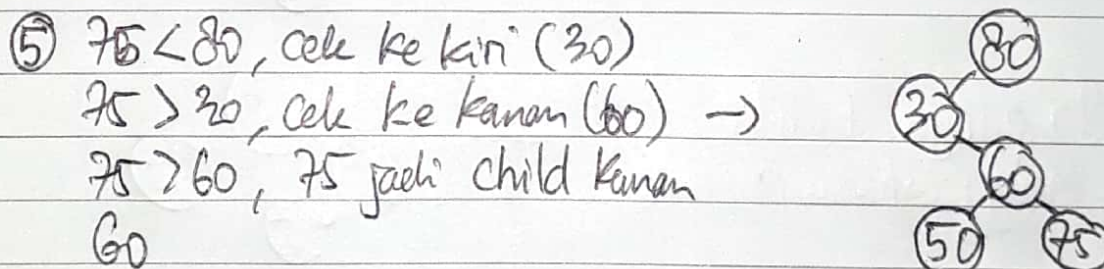 ⑤ 75 < 80, cek ke kiri (30)
75 > 30, cek ke kanan (60) →
75 > 60, 75 jadi child kanan
60
80
30
60
50 75